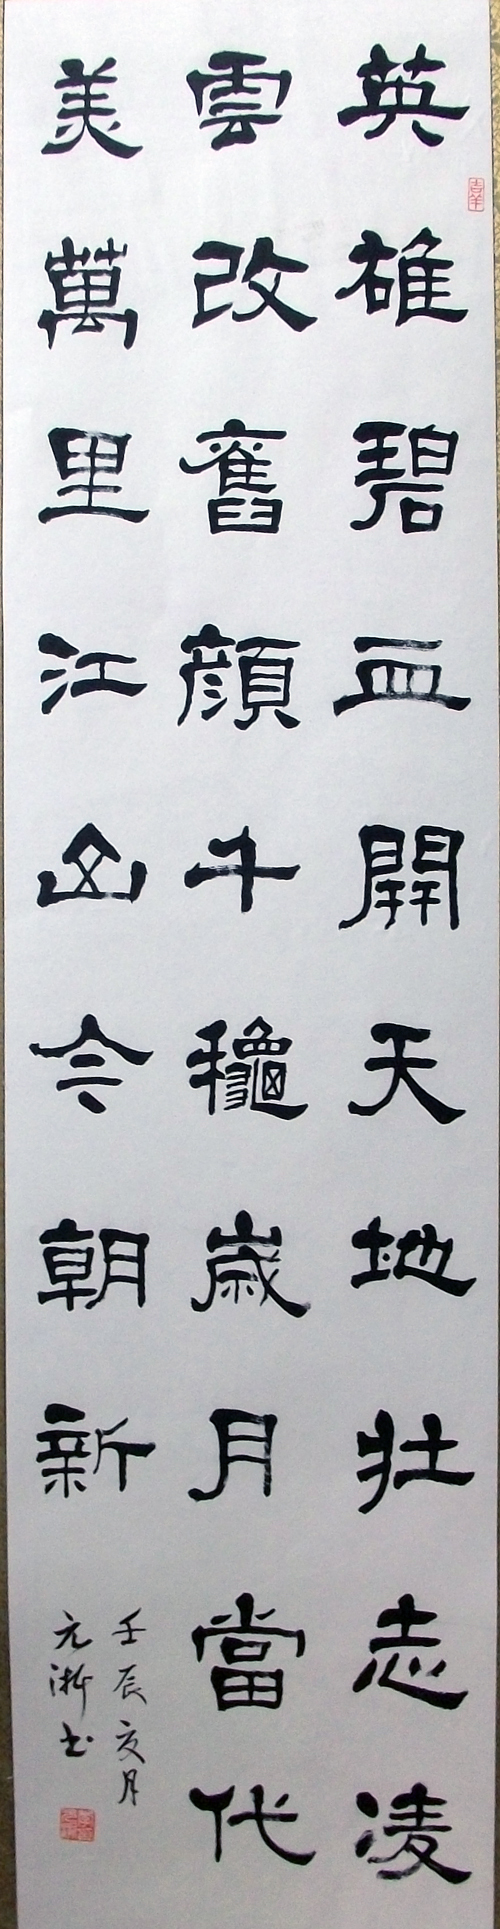 英雄碧血開天地壯志凌
雲改舊顏千穐歲月當代
美萬里江山今朝新
壬辰亥月
元浙书
吉羊